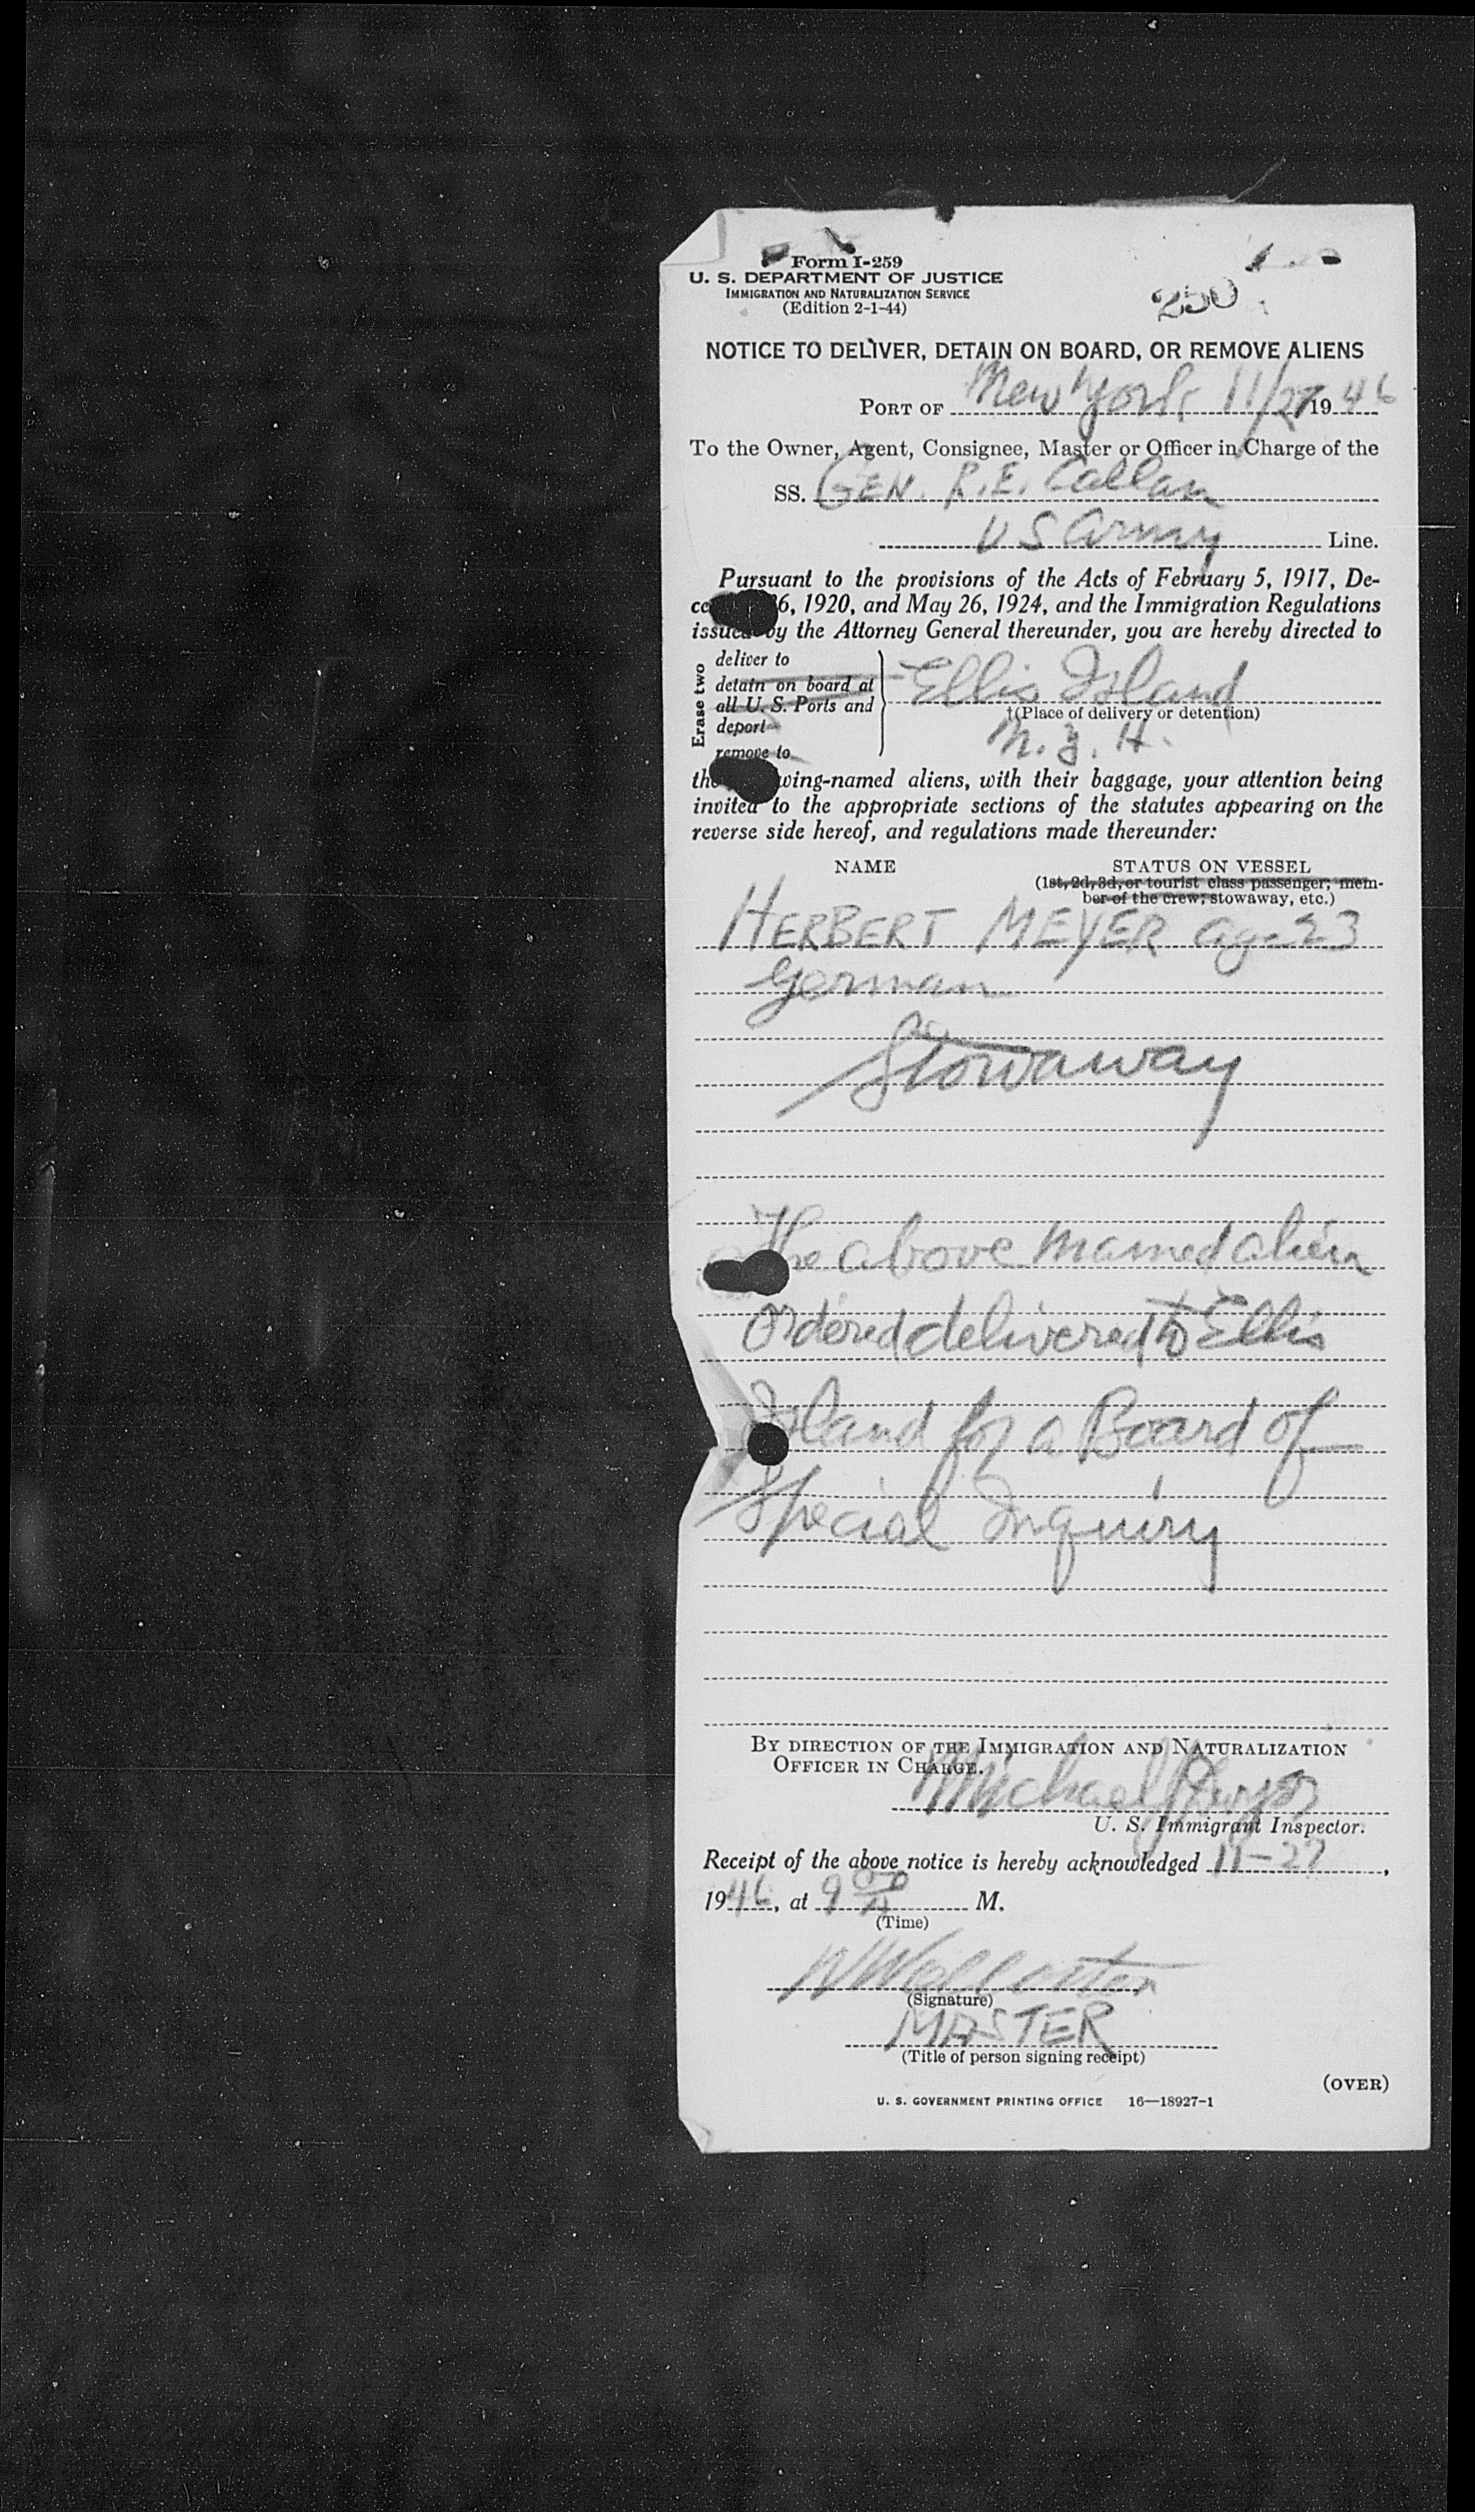 Form I-259
U. S. DEPARTMENT OF JUSTICE
IMMIGRATION AND NATURALIZATION SERVICE
(Edition 2-1-44)
250
NOTICE TO DELIVER, DETAIN ON BOARD, OR REMOVE ALIENS
PORT OF New York 11/27 1946
To the Owner, Agent, Consignee, Master or Officer in Charge of the
SS. GEN. R.E. Callan
US Army Line.
Pursuant to the provisions of the Acts of February 5, 1917, De-
6, 1920, and May 26, 1924, and the Immigration Regulations
issued by the Attorney General thereunder, you are hereby directed to
Erase two
deliver to
detain on board at
all U. S. Ports and
deport
remove to
Ellis Island
†(Place of delivery or detention)
N. Y. H.
wing-named aliens, with their baggage, your attention being
invited to the appropriate sections of the statutes appearing on the
reverse side hereof, and regulations made thereunder:
NAME STATUS ON VESSEL
(1st, 2d, 3d, or tourist class passenger; mem-
ber of the crew; stowaway, etc.)
HERBERT MEYER age 23
German
Stowaway
The above named alien
Ordered delivered to Ellis
Island for a Board of
Special Inquiry
BY DIRECTION OF THE IMMIGRATION AND NATURALIZATION
OFFICER IN CHARGE.
Michael J.
U. S. Immigrant Inspector.
Receipt of the above notice is hereby acknowledged 11-27,
1946, at 9 00 A M.
(Time)
(Signature)
MASTER
(Title of person signing receipt)
(OVER)
U. S. GOVERNMENT PRINTING OFFICE 16—18927-1